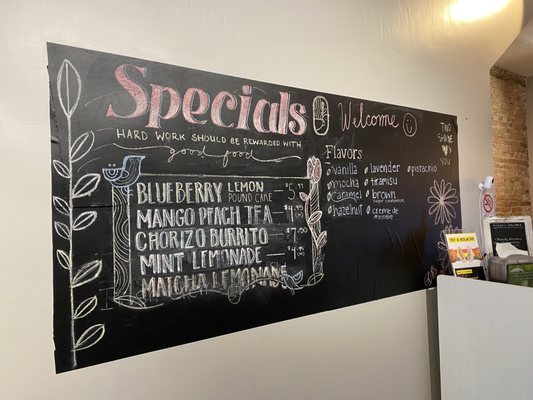 Specials
HARD WORK SHOULD BE REWARDED WITH
good food
BLUEBERRY LEMON POUND CAKE - 5
MANGO PEACH TEA - 4
CHORIZO BURRITO - 7
MINT LEMONADE - 4
MATCHA LEMONADE
Welcome
Flavors
vanilla
mocha
caramel
hazelnut
lavender
tiramisu
brown
creme de menthe
pistachio
TWO
SHADE
YOU